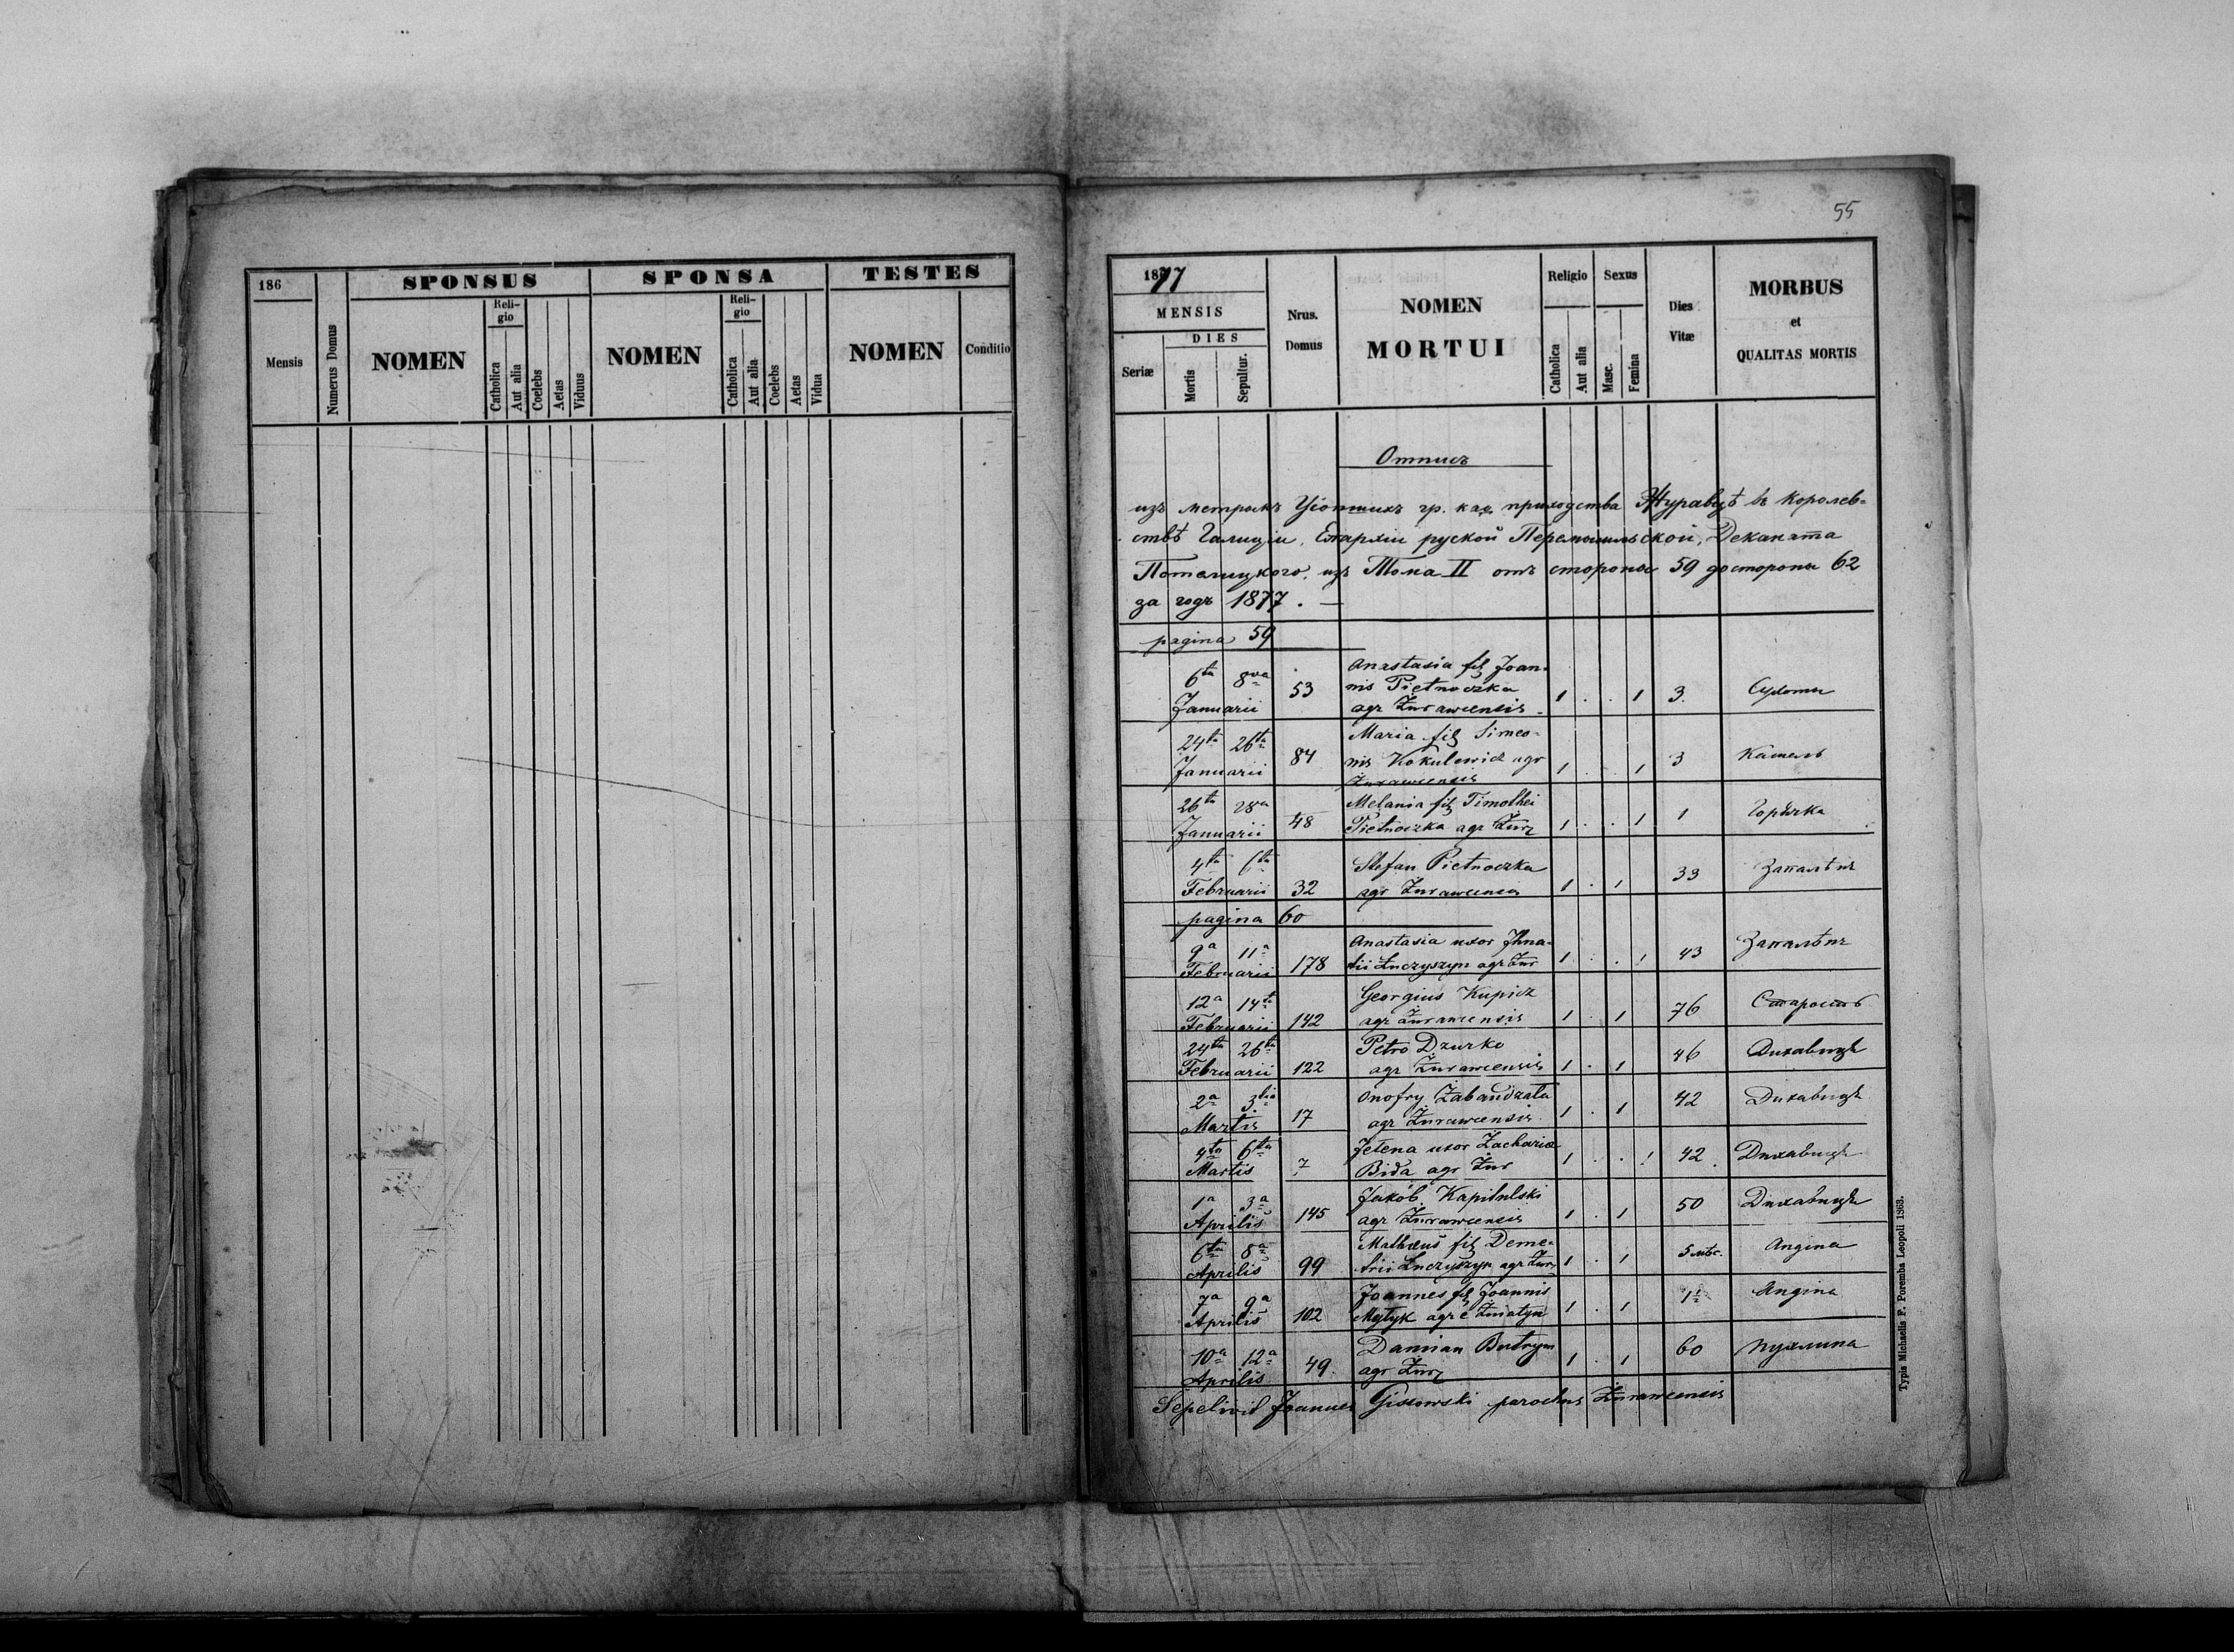 186
SPONSUS
SPONSA
TESTES
Mensis
Numerus Domus
NOMEN
Reli-
gio
Catholica
Aut alia
Coelebs
Aetas
Viduus
NOMEN
Reli-
gio
Catholica
Aut alia
Coelebs
Aetas
Vidua
NOMEN
Conditio
55
1877
MENSIS
DIES
Seriæ
Mortis
Sepultur.
Nrus.
Domus
NOMEN
MORTUI
Religio
Catholica
Aut alia
Sexus
Masc.
Femina
Dies
Vitæ
MORBUS
et
QUALITAS MORTIS
Отписъ
изъ метрыкъ Усопшихъ гр. каѳ. приходства Журавцѣ въ Королев-
ствѣ Галиціи, Епархіи руской Перемышльской, Деканата
Потелицкого, изъ Тома II отъ стороны 59 до стороны 62
за годъ 1877. —
pagina 59
6ta 8va Januarii 53 Anastasia fil Joan-
nis Pietnoczka
agr Żurawcensis 1 . . 1 3. Сухоты
24ta 26ta Januarii 84 Maria fil Simeo-
nis Kokulewicz agr
Żurawcensis 1 . . 1 3 Кашель
26ta 28a Januarii 48 Melania fil Timothei
Pietnoczka agr Żur 1 . . 1 1 Горячка
4ta 6ta Februarii 32 Stefan Pietnoczka
agr Żurawcensis 1 . 1 33 Запалѣнє
pagina 60
9a 11a Februarii 178 Anastasia uxor Ihna-
tii Łuczyszyn agr Żur 1 . . 1 43 Запалѣнє
12a 14ta Februarii 142 Georgius Kupicz
agr Żurawcensis 1 . 1 76 Старость
24ta 26ta Februarii 122 Petro Dzurko
agr Żurawcensis 1 . 1 46 Дихавиця
2a 3tia Martis 17 Onofry Zabandzała
agr Żurawcensis 1 . 1 42 Дихавиця
4ta 6ta Martis 7 Jelena uxor Zachariæ
Bida agr Żur 1 . . 1 42. Дихавиця
1a 3a Aprilis 145 Jakób Kapitulski
agr Żurawcensis 1 . 1 50 Дихавиця
6ta 8a Aprilis 99 Mathæus fil Deme-
trii Łuczyszyn agr Żur 1 . 1 5 мѣс. Angina
7a 9a Aprilis 102 Joannes fil Joannis
Mytyk agr e Żniatyn 1 . 1 1½ Angina
10a 12a Aprilis 49. Damian Butryn
agr Żur 1 . 1 60 Пухлина
Sepelivit Joannes Gissowski parochus Żurawcensis
Typis Michaelis F. Poremba Leopoli 1863.